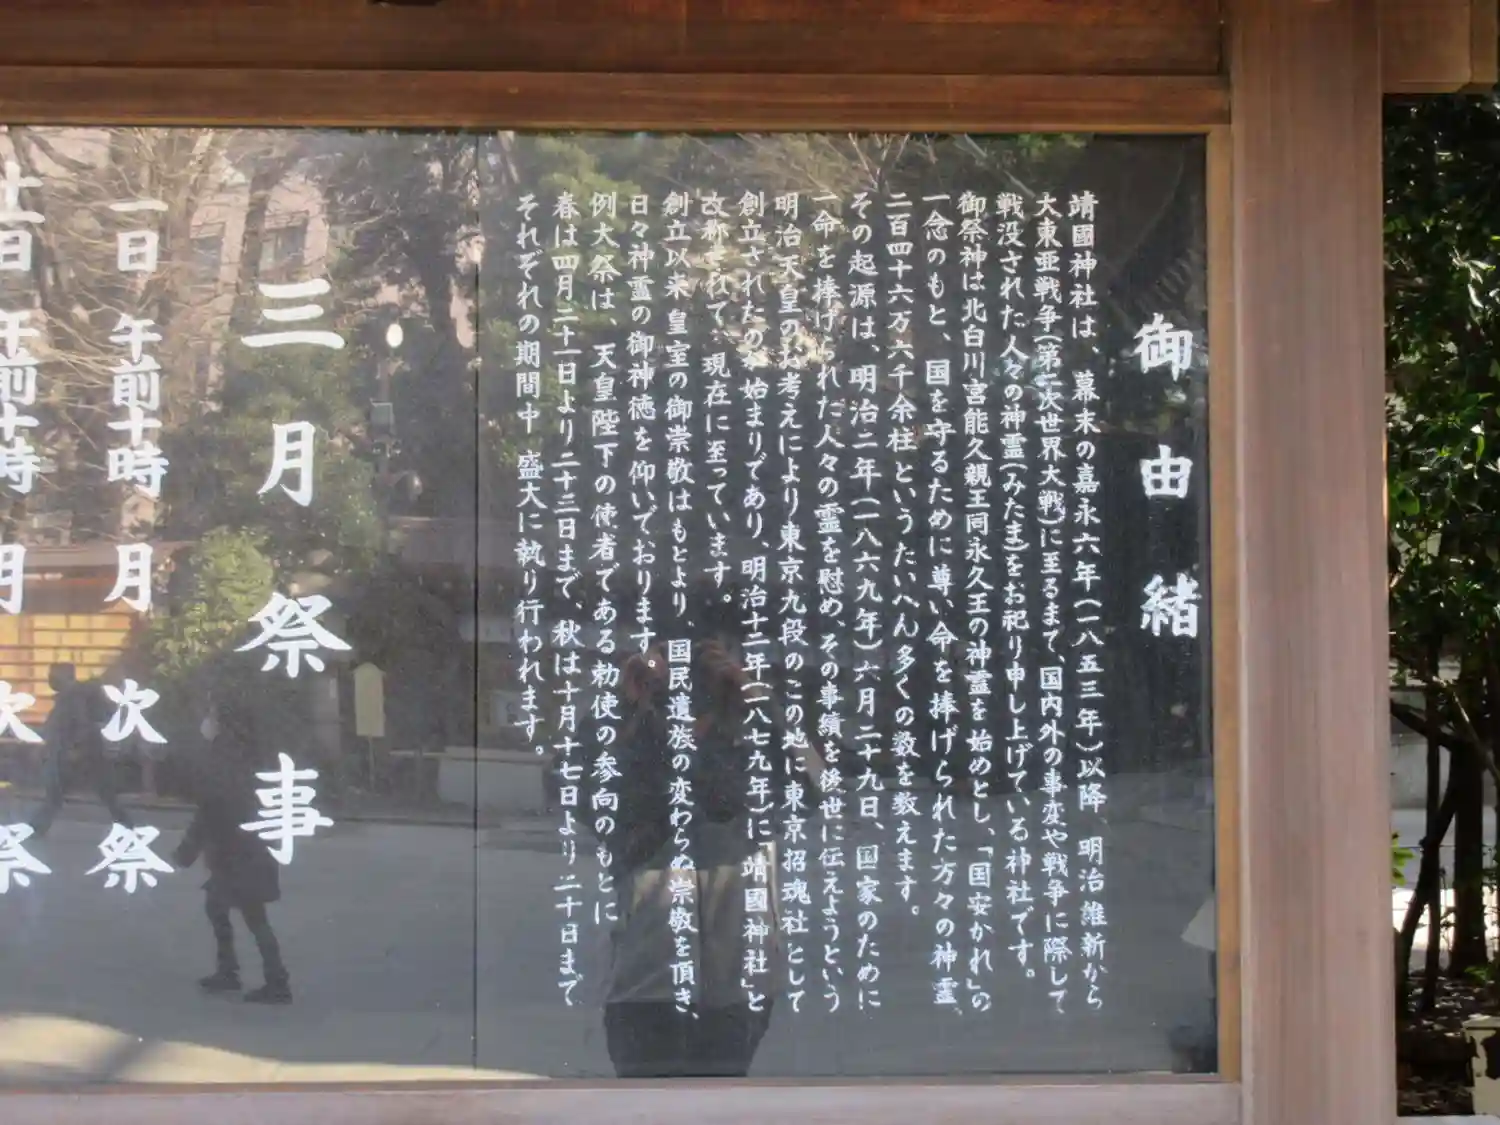 御由緒
靖國神社は、幕末の嘉永六年(一八五三年)以降、明治維新から
大東亜戦争(第二次世界大戦)に至るまで、国内外の事変や戦争に際して
戦没された人々の神霊(みたま)をお祀り申し上げている神社です。
御祭神は北白川宮能久親王同永久王の神霊を始めとし、「国安かれ」の
一念のもと、国を守るために尊い命を捧げられた方々の神霊、
二百四十六万六千余柱というたいへん多くの数を数えます。
その起源は、明治二年(一八六九年)六月二十九日、国家のために
一命を捧げられた人々の霊を慰め、その事績を後世に伝えようという
明治天皇のお考えにより東京九段のこの地に東京招魂社として
創立されたのが始まりであり、明治十二年(一八七九年)に「靖國神社」と
改称されて、現在に至っています。
創立以来皇室の御崇敬はもとより、国民遺族の変わらぬ崇敬を頂き、
日々神霊の御神徳を仰いでおります。
例大祭は、天皇陛下の使者である勅使の参向のもとに
春は四月二十一日より二十三日まで、秋は十月十七日より二十日まで
それぞれの期間中 盛大に執り行われます。
三月祭事
一日 午前十時 月次祭
十一日 午前十時 月次祭